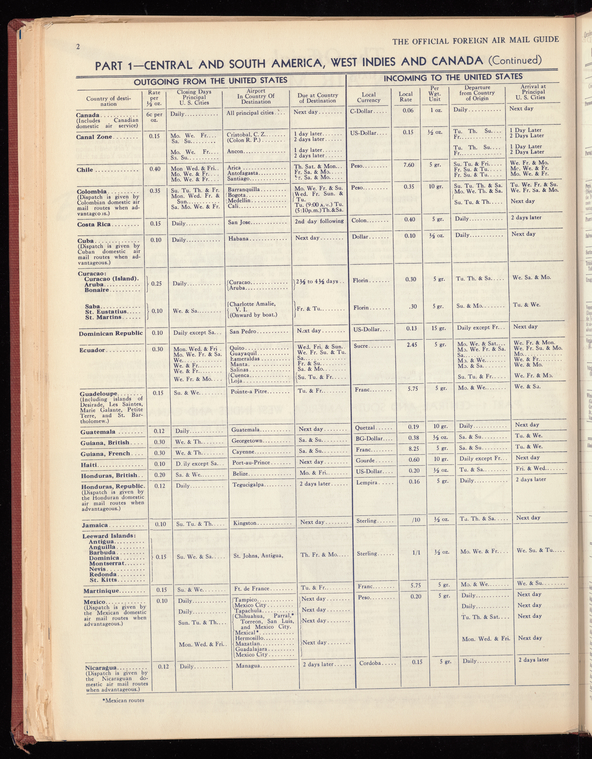 2
THE OFFICIAL FOREIGN AIR MAIL GUIDE
PART 1—CENTRAL AND SOUTH AMERICA, WEST INDIES AND CANADA (Continued)
OUTGOING FROM THE UNITED STATES INCOMING TO THE UNITED STATES
Country of desti-nation Rate per ½ oz. Closing Days Principal U. S. Cities Airport In Country Of Destination Due at Country of Destination Local Currency Local Rate Per Wgt. Unit Departure from Country of Origin Arrival at Principal U. S. Cities
Canada 6c per oz. Daily All principal cities Next day C-Dollar 0.06 1 oz. Daily Next day
(Includes Canadian
domestic air service)
Canal Zone 0.15 Mo. We. Fr. Cristobal, C. Z. 1 day later US-Dollar 0.15 ½ oz. Tu. Th. Su. 1 Day Later
Sa. Su. (Colon R. P.) 2 days later Fr. 2 Days Later
Mo. We. Fr. Ancon 1 day later Tu. Th. Su. 1 Day Later
Sa. Su. 2 days later Fr. 2 Days Later
Chile 0.40 Mon. Wed. & Fri. Arica Th. Sat. & Mon. Peso 7.60 5 gr. Su. Tu. & Fri. We. Fr. & Mo.
Mo. We. & Fr. Antofagasta Fr. Sa. & Mo. Fr. Su. & Tu. Mo. We. & Fr.
Mo. We. & Fr. Santiago Fr. Sa. & Mo. Fr. Su. & Tu. Mo. We. & Fr.
Colombia 0.35 Su. Tu. Th. & Fr. Barranquilla Mo. We. Fr. & Su. Peso 0.35 10 gr. Su. Tu. Th. & Sa. Tu. We. Fr. & Su.
(Dispatch is given by Mon. Wed. Fr. & Bogota Wed. Fr. Sun. & Mo. We. Th. & Sa. We. Fr. Sa. & Mo.
Colombian domestic air Sun. Medellin Tu. Su. Tu. & Th. Next day
mail routes when ad- Sa. Mo. We. & Fr. Cali Tu. (9:00 a.v.) Tu.
vantageous.) (5:10p.m.)Th.&Sa.
Costa Rica 0.15 Daily San Jose 2nd day following Colon 0.40 5 gr. Daily 2 days later
Cuba 0.10 Daily Habana Next day Dollar 0.10 ½ oz. Daily Next day
(Dispatch is given by
Cuban domestic air
mail routes when ad-
vantageous.)
Curacao:
Curacao (Island).
Aruba 0.25 Daily Curacao 2½ to 4½ days Florin 0.30 5 gr. Tu. Th. & Sa. We. Sa. & Mo.
Bonaire Aruba
Saba Charlotte Amalie,
St. Eustatius 0.10 We. & Sa. V. I. Fr. & Tu. Florin .30 5 gr. Su. & Mo. Tu. & We.
St. Martins (Onward by boat.)
Dominican Republic 0.10 Daily except Sa. San Pedro Next day US-Dollar 0.13 15 gr. Daily except Fr. Next day
Ecuador 0.30 Mon. Wed. & Fri. Quito Wed. Fri. & Sun. Sucre 2.45 5 gr. Mo. We. & Sat. We. Fr. & Mon.
Mo. We. Fr. & Sa. Guayaquil We. Fr. Su. & Tu. Mo. We. Fr. & Sa. We. Fr. Su. & Mo.
We. Esmeraldas Sa. Sa. Mo.
We. & Fr. Manta Fr. & Su. Mo. & We. We. & Fr.
We. & Fr. Salinas Sa. & Mo. Mo. & Sa. We. & Mo.
We. Fr. & Mo. Cuenca Su. Tu. & Fr. Su. Tu. & Fr. We. Fr. & Mo.
Loja
Guadeloupe 0.15 Su. & We. Pointe-a Pitre Tu. & Fr. Franc 5.75 5 gr. Mo. & We. We. & Sa.
(Including islands of
Desirade, Les Saintes,
Marie Galante, Petite
Terre, and St. Bar-
tholomew.)
Guatemala 0.12 Daily Guatemala Next day Quetzal 0.19 10 gr. Daily Next day
Guiana, British 0.30 We. & Th. Georgetown Sa. & Su. BG-Dollar 0.38 ½ oz. Sa. & Su. Tu. & We.
Guiana, French 0.30 We. & Th. Cayenne Sa. & Su. Franc 8.25 5 gr. Sa. & Su. Tu. & We.
Haiti 0.10 Daily except Sa. Port-au-Prince Next day Gourde 0.60 10 gr. Daily except Fr. Next day
Honduras, British 0.20 Sa. & We. Belize Mo. & Fri. US-Dollar 0.20 ½ oz. Tu. & Sa. Fri. & Wed.
Honduras, Republic. 0.12 Daily Tegucigalpa 2 days later Lempira 0.16 5 gr. Daily 2 days later
(Dispatch is given by
the Honduran domestic
air mail routes when
advantageous.)
Jamaica 0.10 Su. Tu. & Th. Kingston Next day Sterling /10 ½ oz. Tu. Th. & Sa. Next day
Leeward Islands:
Antigua
Anguilla
Barbuda
Dominica 0.15 Su. We. & Sa. St. Johns, Antigua, Th. Fr. & Mo. Sterling 1/1 ½ oz. Mo. We. & Fr. We. Su. & Tu.
Montserrat
Nevis
Redonda
St. Kitts
Martinique 0.15 Su. & We. Ft. de France Tu. & Fr. Franc 5.75 5 gr. Mo. & We. We. & Su.
Mexico 0.10 Daily Tampico Next day Peso 0.20 5 gr. Daily Next day
(Dispatch is given by Mexico City
the Mexican domestic Daily Tapachula Next day Daily Next day
air mail routes when Sun. Tu. & Th. Chihuahua, Parral,* Next day Tu. Th. & Sat. Next day
advantageous.) Torreon, San Luis,
and Mexico City.
Mexical*
Hermosillo
Mon. Wed. & Fri. Mazatlan Next day Mon. Wed. & Fri. Next day
Guadalajara
Mexico City
Nicaragua 0.12 Daily Managua 2 days later Cordoba 0.15 5 gr. Daily 2 days later
(Dispatch is given by
the Nicaraguan do-
mestic air mail routes
when advantageous.)
*Mexican routes